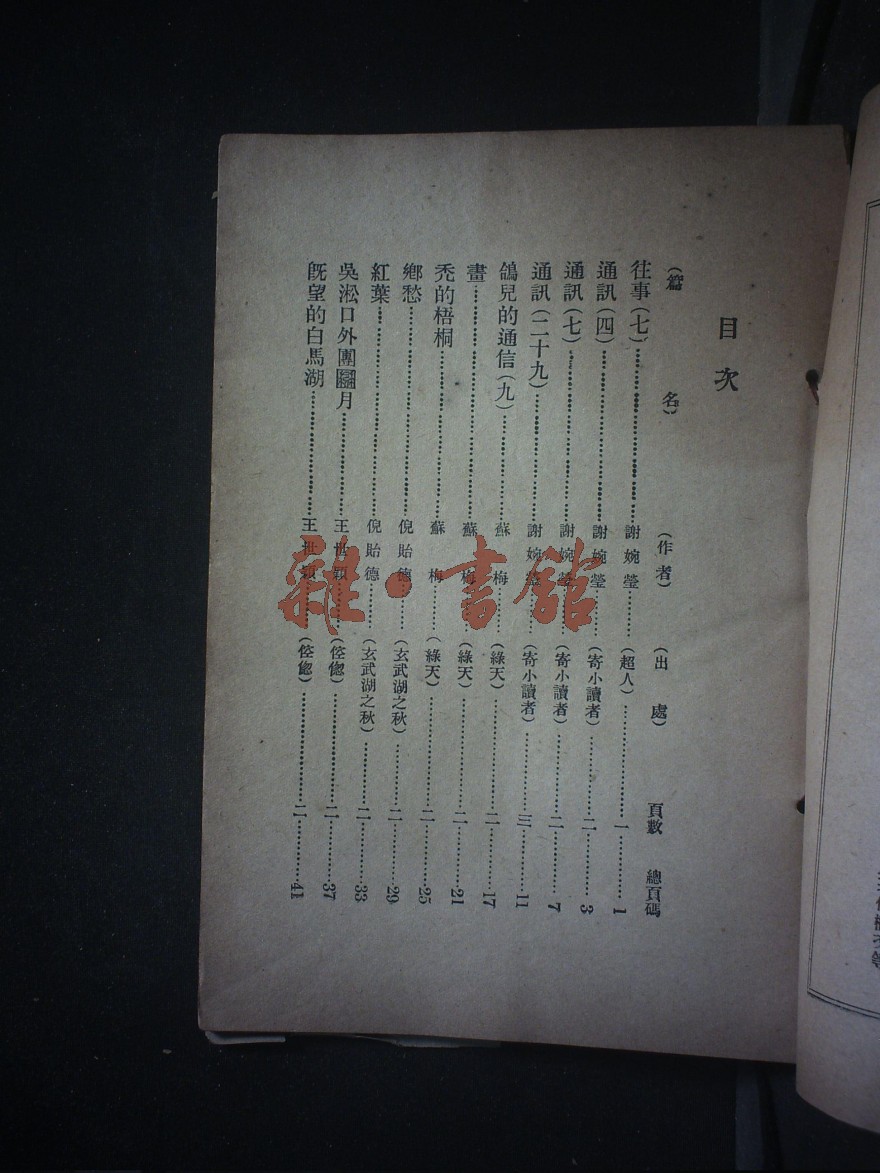 目次
（篇名）（作者）（出處）頁數 總頁碼
往事（七）……謝婉瑩……（超人）……一……1
通訊（四）……謝婉瑩……（寄小讀者）……二……3
通訊（七）……謝婉瑩……（寄小讀者）……二……7
通訊（二十九）……謝婉瑩……（寄小讀者）……三……11
鴿兒的通信（九）……蘇梅……（綠天）……二……17
畫……蘇梅……（綠天）……二……21
禿的梧桐……蘇梅……（綠天）……二……25
鄉愁……倪貽德……（玄武湖之秋）……二……29
紅葉……倪貽德……（玄武湖之秋）……二……33
吳淞口外團圞月……王世穎……（倥傯）……二……37
旣望的白馬湖……王世穎……（倥傯）……二……41
雜·書館